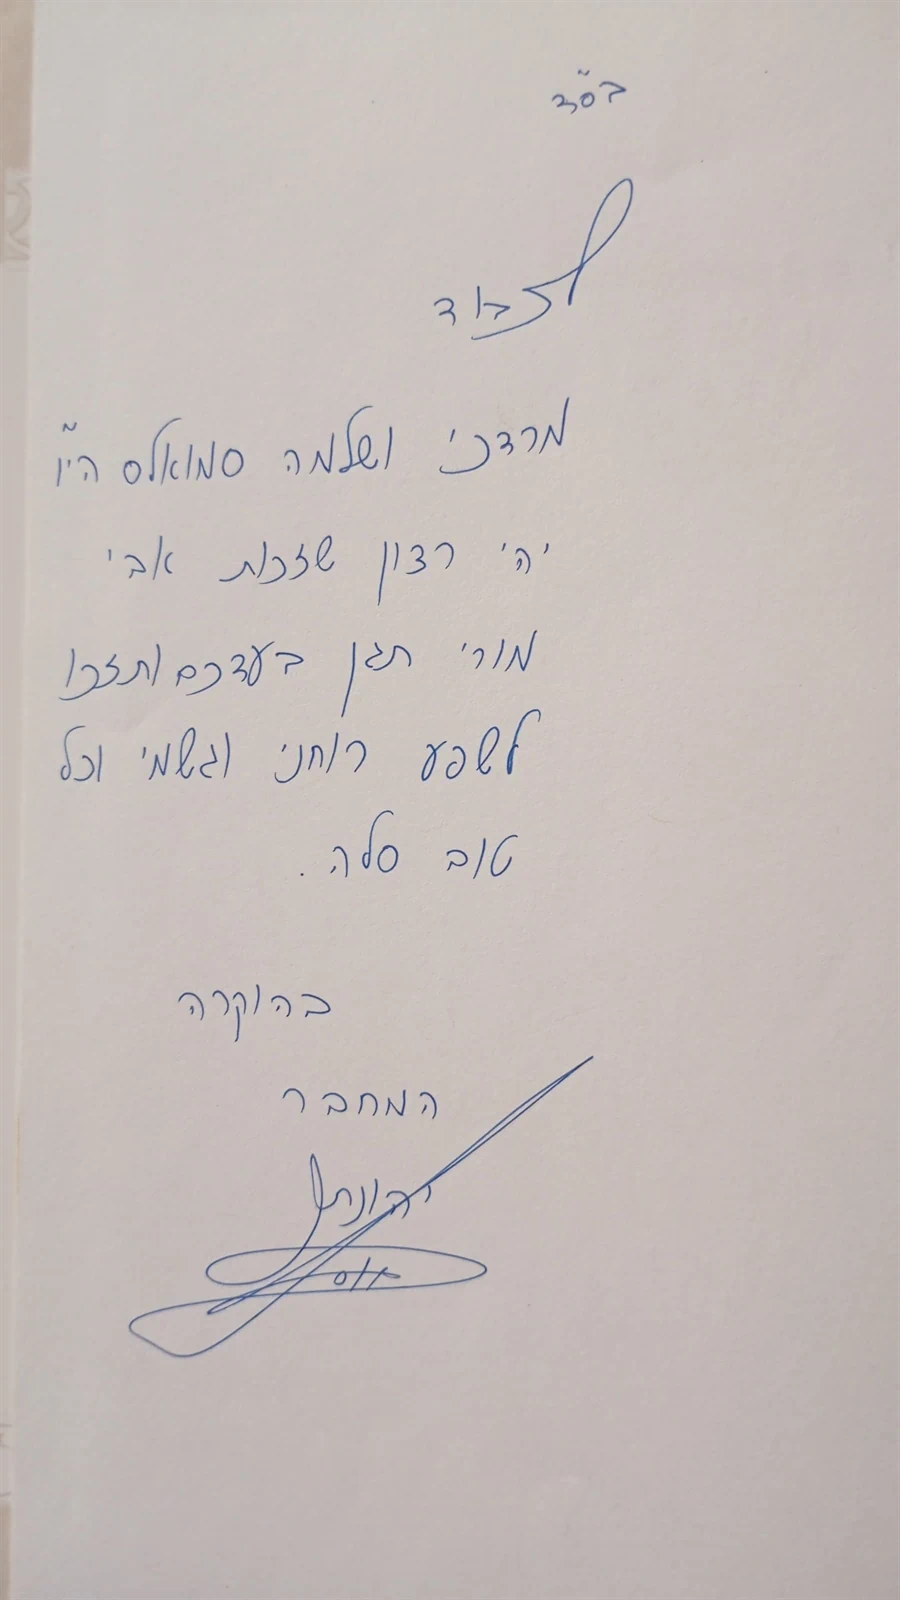 בס"ד
לכבוד
מרדכי ושלמה סמואלס הי"ו
יהי רצון שזכות אבי
מורי תגן בעדכם ותזכו
לשפע רוחני וגשמי וכל
טוב סלה.
בהוקרה
המחבר
יהונתן